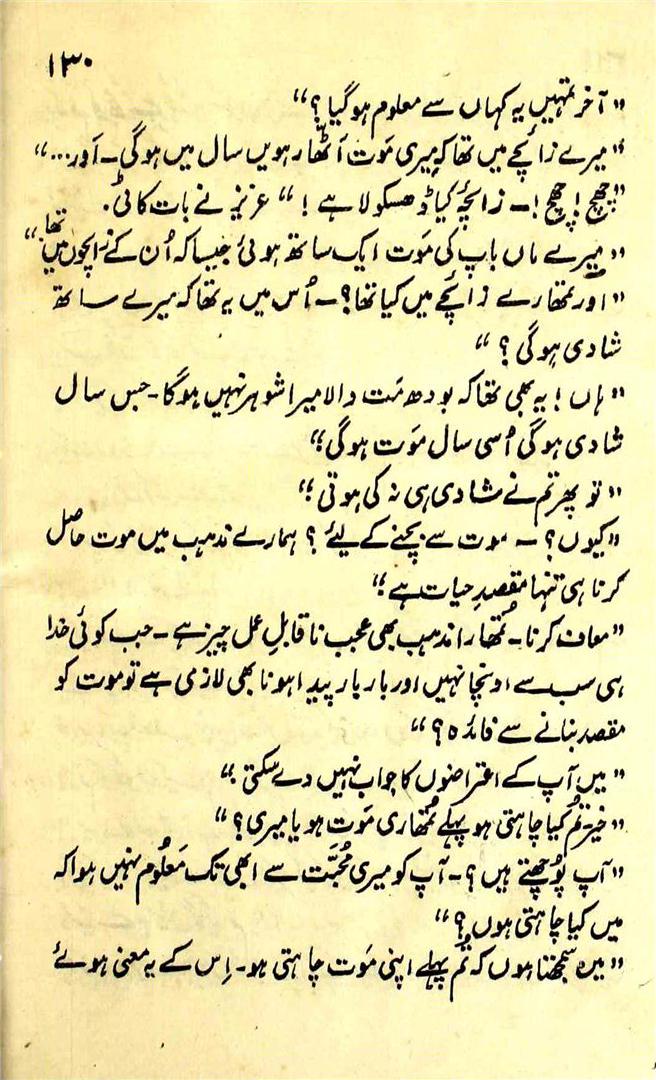 ۱۳۰
"آخر تمہیں یہ کہاں سے معلوم ہوگیا؟"
"میرے زائچے میں تھا کہ میری مَوت اَٹھارھویں سال میں ہوگی۔ اَور..."
"چھچ! چھچ!۔ زائچۂ کیا ڈھسکولا ہے!" عزیز نے بات کاٹی۔
"میرے ماں باپ کی مَوت ایک ساتھ ہوئی جیسا کہ اُن کے زائچوں میں تھا۔"
"اور تمھارے زائچے میں کیا تھا؟۔ اُس میں یہ تھا کہ میرے ساتھ
شادی ہوگی؟"
"ہاں! یہ بھی تھا کہ بودھ مَت والا میرا شوہر نہیں ہوگا۔ جس سال
شادی ہوگی اُسی سال مَوت ہوگی؛"
"تو پھر تم نے شادی ہی نہ کی ہوتی؛"
"کیوں؟۔ موت سے بچنے کے لیئے؟ ہمارے مذہب میں موت حاصل
کرنا ہی تنہا مقصدِ حیات ہے؛"
"معاف کرنا۔ تُمھارا مذہب بھی عجب ناقابلِ عمل چیز ہے۔ جب کوئی خدا
ہی سب سے اونچا نہیں اور بار بار پیدا ہونا بھی لازمی ہے تو موت کو
مقصد بنانے سے فائدہ؟"
"میں آپ کے اعتراضوں کا جواب نہیں دے سکتی؛"
"خیر تُم کیا چاہتی ہو پہلے تُمھاری مَوت ہو یا میری؟"
"آپ پُوچھتے ہیں؟۔ آپ کو میری مُحبّت سے ابھی تک مَعلُوم نہیں ہوا کہ
میں کیا چاہتی ہوں؟"
"میں سمجھتا ہوں کہ تُم پہلے اپنی مَوت چاہتی ہو۔ اِس کے یہ معنی ہوئے